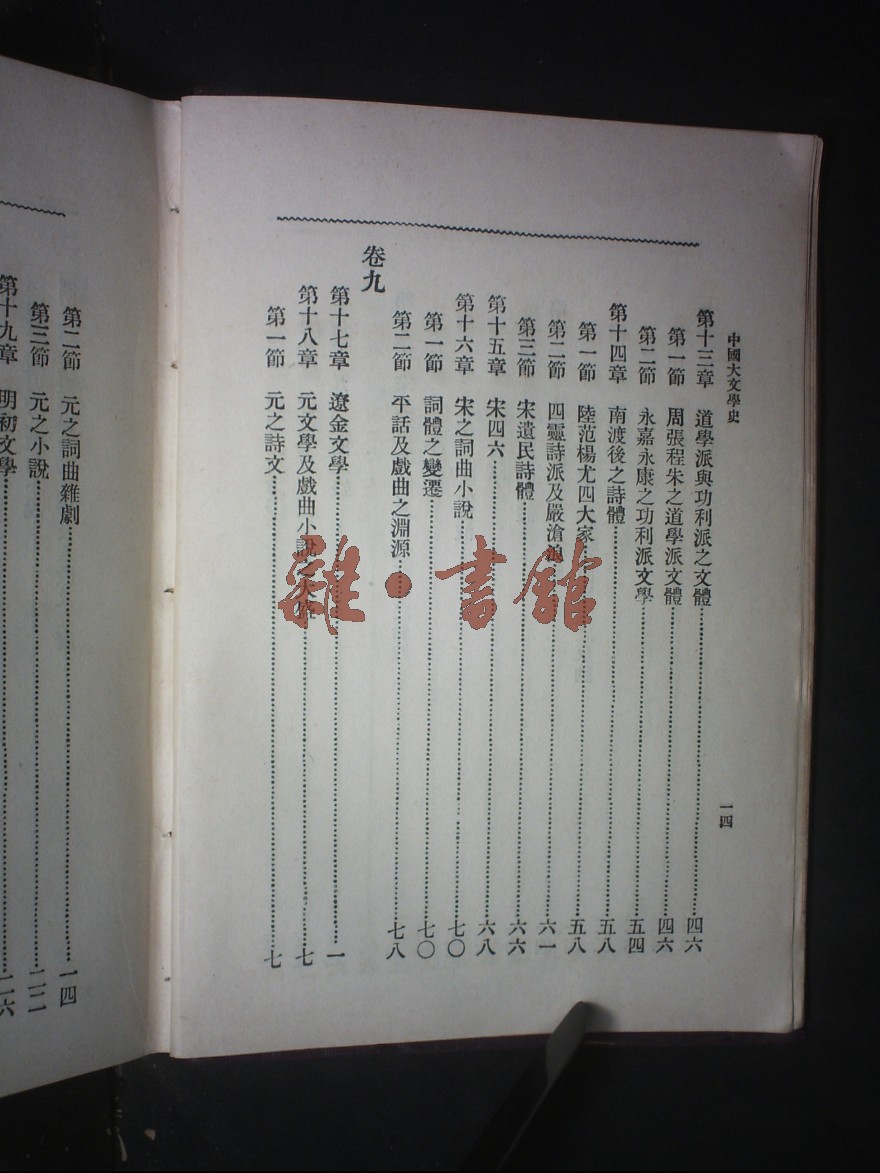 中國大文學史
一四
第十三章 道學派與功利派之文體 四六
第一節 周張程朱之道學派文體 四六
第二節 永嘉永康之功利派文學 五四
第十四章 南渡後之詩體 五八
第一節 陸范楊尤四大家 五八
第二節 四靈詩派及嚴滄浪 六一
第三節 宋遺民詩體 六六
第十五章 宋四六 六八
第十六章 宋之詞曲小說 七〇
第一節 詞體之變遷 七〇
第二節 平話及戲曲之淵源 七八
卷九
第十七章 遼金文學 一
第十八章 元文學及戲曲小說之大盛 七
第一節 元之詩文 七
第二節 元之詞曲雜劇 一四
第三節 元之小說 二二
第十九章 明初文學 二六
雜·書館